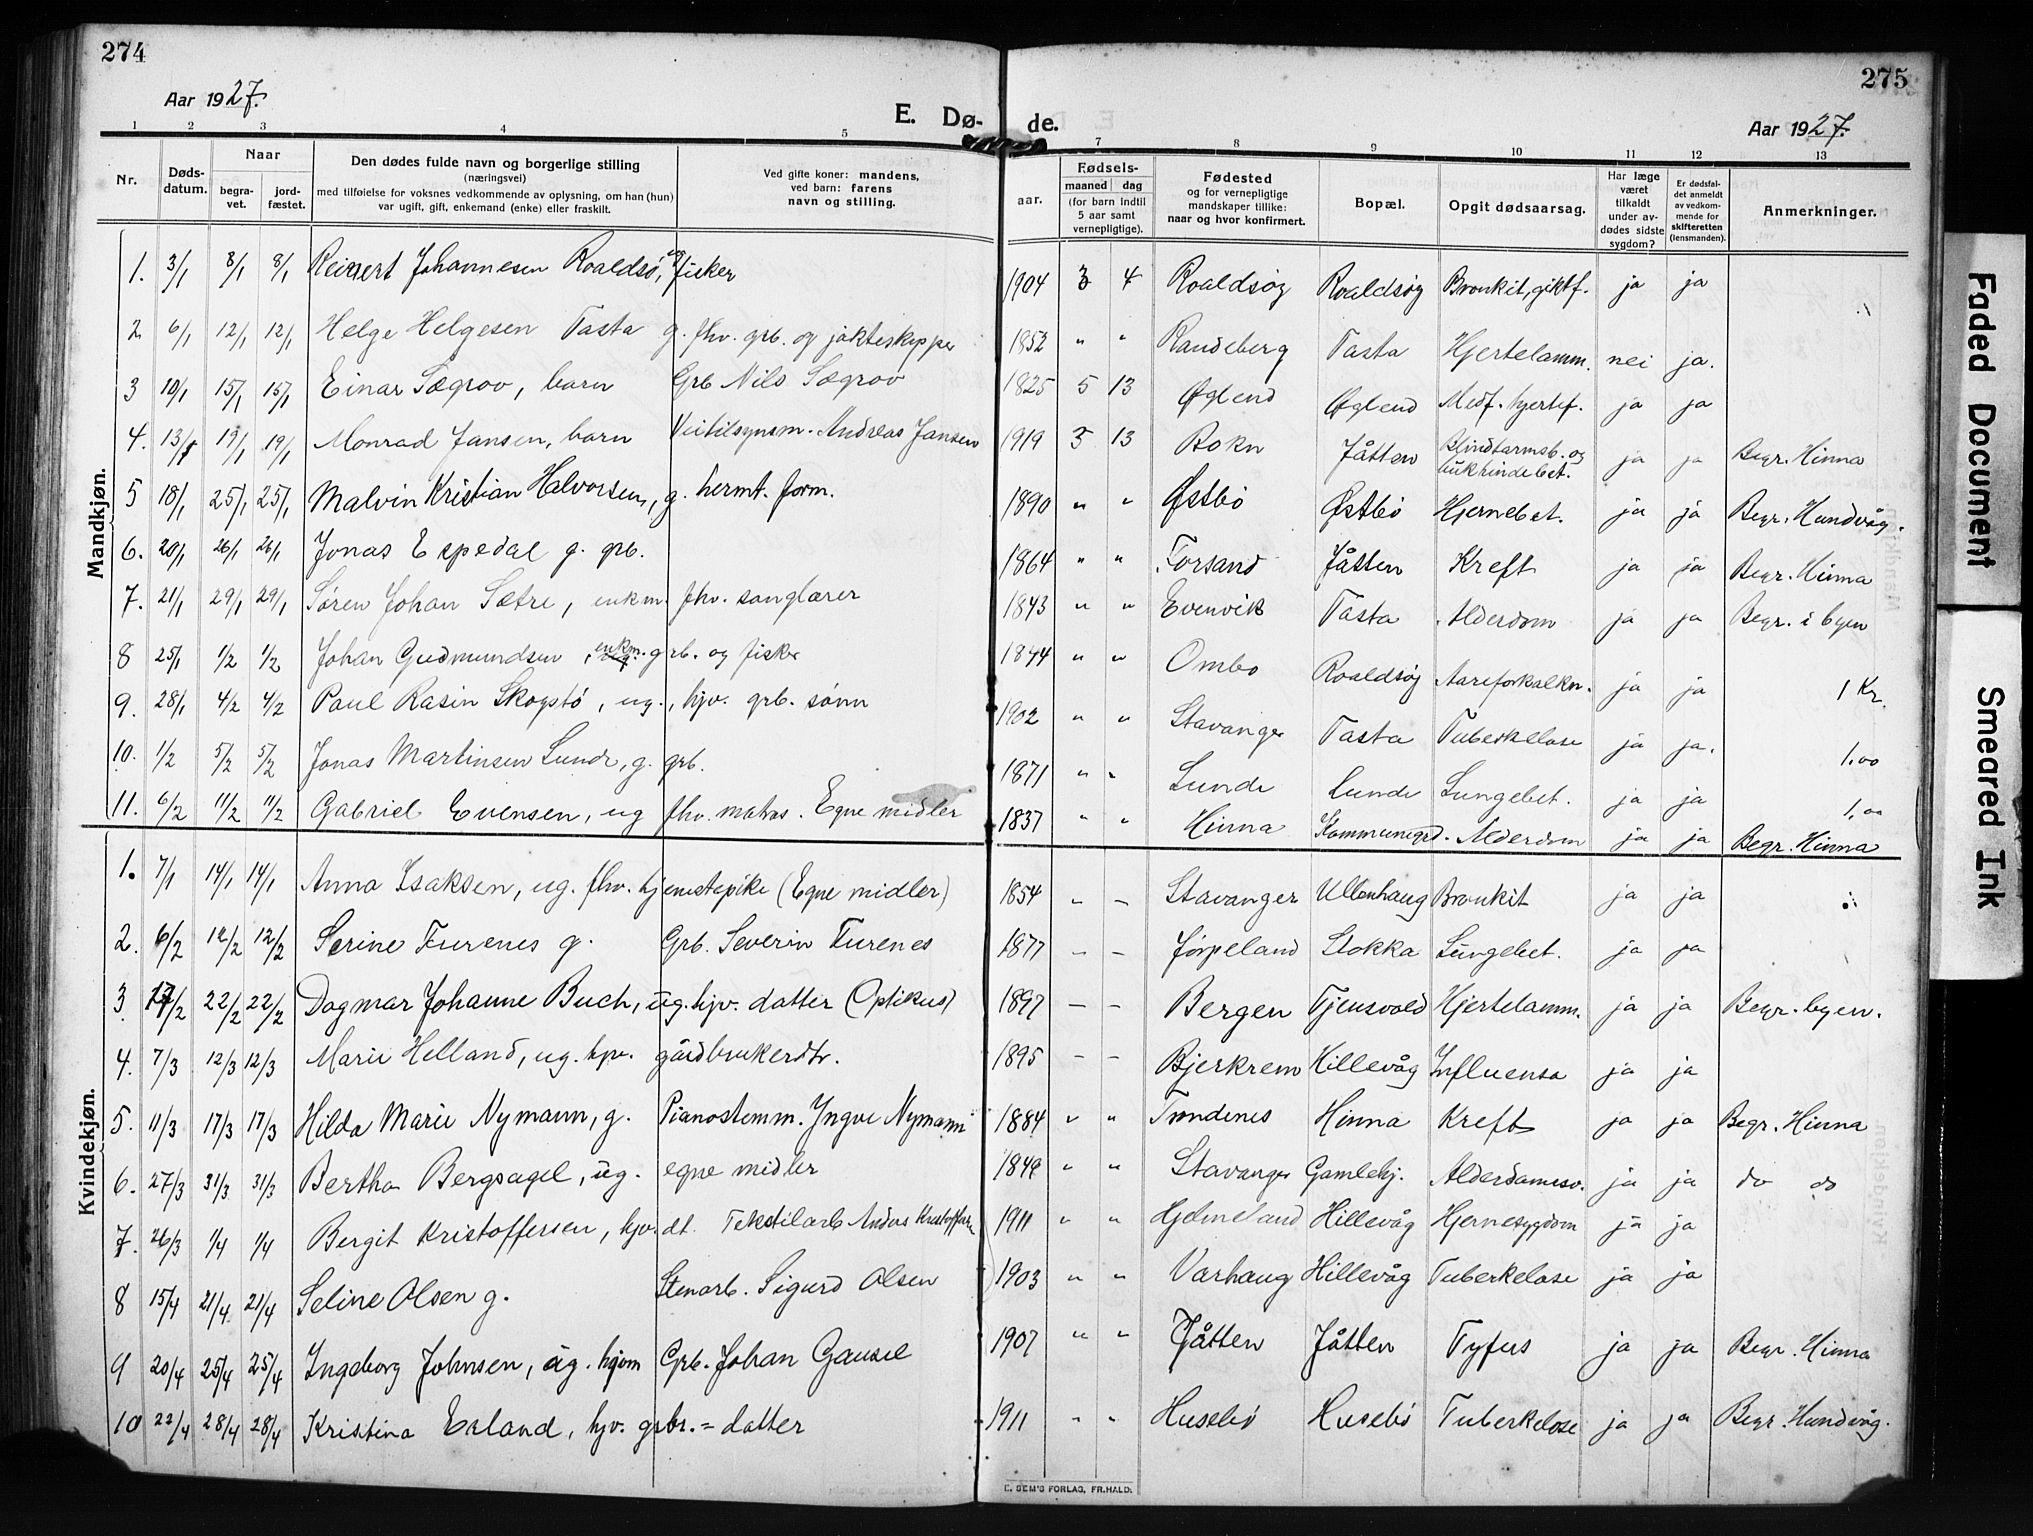 274
275
Aar 1927.
E. Dø-
de.
Aar 1927.
1 2 3 4 5 7 8 9 10 11 12 13
Nr.
Døds-
datum.
Naar
begra-
vet.
jord-
fæstet.
Den dødes fulde navn og borgerlige stilling
(næringsvei)
med tilføielse for voksnes vedkommende av oplysning, om han (hun)
var ugift, gift, enkemand (enke) eller fraskilt.
Ved gifte koner: mandens,
ved barn: farens
navn og stilling.
Fødsels-
aar.
maaned
dag
(for barn indtil
5 aar samt
vernepligtige).
Fødested
og for vernepligtige
mandskaper tillike:
naar og hvor konfirmert.
Bopæl.
Opgit dødsaarsag.
Har læge
været
tilkaldt
under av-
dødes sidste
sygdom?
Er dødsfal-
det anmeldt
av vedkom-
mende for
skifteretten
(lensmanden).
Anmerkninger.
Mandkjøn.
1. 3/1 8/1 8/1 Reinert Johannesen Roaldsø, ug fisker 1904 3 4 Roaldsøy Roaldsøy Bronkit, giktf. ja ja
2 6/1 12/1 12/1 Helge Helgesen Tasta g. fhv. grb. og jakteskipper 1852 " " Randeberg Tasta Hjertelamm. nei ja.
3 10/1 15/1 15/1 Einar Sægrov, barn Grb Nils Sægrov 1825 5 13 Øglend Øglend Medf. hjertef. ja ja
4. 13/1 19/1 19/1 Monrad Jansen, barn Veitilsynsm. Andreas Jansen 1919 5 13 Bokn Jåtten Blindtarmsb. og bukhindebet. ja ja Begr. Hinna
5 18/1 25/1 25/1 Malvin Kristian Halvorsen, g. hermt. form. 1890 " " Østbö Østbö Hjernebet. ja ja Begr. Hundvåg.
6. 20/1 26/1 26/1 Jonas Espedal g. grb. 1864 " " Forsand Jåtten Kreft ja ja Begr. Hinna
7. 21/1 29/1 29/1 Søren Johan Sætre, enkm. fhv. sanglærer 1843 " " Evenvik Tasta Alderdom ja ja Begr. i byen
8 25/1 1/2 1/2 Johan Gudmundsen, enkm. grb. og fisker 1844 " " Ombo Roaldsøy Aareforkalkn. ja ja 1 Kr.
9. 28/1 4/2 4/2 Paul Rasin Skogstø, ug., hjv. grb. sønn 1902 " " Stavanger Tasta Tuberkelose ja ja. 1,00
10. 1/2 5/2 5/2 Jonas Martinsen Lunde, g. grb. 1871 " " Lunde Lunde Lungebet. ja ja 1,00
11. 6/2 11/2 11/2 Gabriel Evensen, ug fhv. matros. Egne midler 1837 " " Hinna Kommunegrd. Alderdom ja ja Begr. Hinna
Kvindekjøn.
1. 7/1 14/1 14/1 Anna Isaksen, ug. fhv. tjenestepike (Egne midler) 1854 – – Stavanger Ullenhaug Bronkit ja ja
2. 6/2 12/2 12/2 Serine Furenes g. Grb. Severin Furenes 1877 – – Jörpeland Stokka Lungebet. ja ja
3. 17/2 22/2 22/2 Dagmar Johanne Buch, ug. hjv. datter (Optikus) 1897 – – Bergen Tjensvold Hjertelamm. ja ja Begr. byen.
4. 7/3 12/3 12/3 Marie Helland, ug. hjv. gårdbrukerdtr. 1895 – – Bjerkrem Hillevåg Influensa ja ja
5. 11/3 17/3 17/3 Hilda Marie Nymann, g. Pianostemm. Yngve Nymann 1884 " " Trondenes Hinna Kreft ja ja Begr. Hinna
6. 27/3 31/3 31/3 Bertha Bergsagel, ug. egne midler " " Stavanger Gamlehj. ja ja do do
7. 26/3 1/4 1/4 Bergit Kristoffersen, hjv. dt. Tekstilarb Anders Kristoffersen 1911 " " Hjelmeland Hillevåg Hjernesygdom ja ja
8 15/4 21/4 21/4 Seline Olsen g. Stenarb. Sigurd Olsen 1903 " " Varhaug Hillevåg Tuberkelose ja ja
9 20/4 25/4 25/4 Ingeborg Johnsen, ug. hjem Grb. Johan Gausel 1907 " " Jåtten Jåtten Tyfus ja ja Begr. Hinna
10 22/4 28/4 28/4 Kristina Erland, hjv. grbr. = datter 1911 " " Husebö Husebö Tuberkelose ja ja Begr. Hundvåg.
E. SEM'S FORLAG, FR.HALD.
Faded Document
Smeared Ink